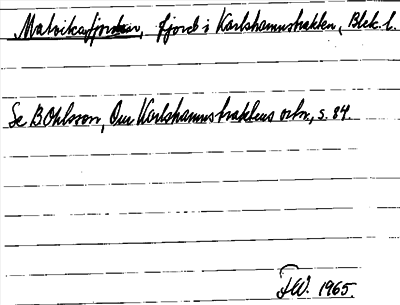 Matviksfjorden, fjord i Karlshamnstrakten, Blek. l.
Se B Ohlsson, Om Karlshamnstraktens ortn, s. 84.
1965.